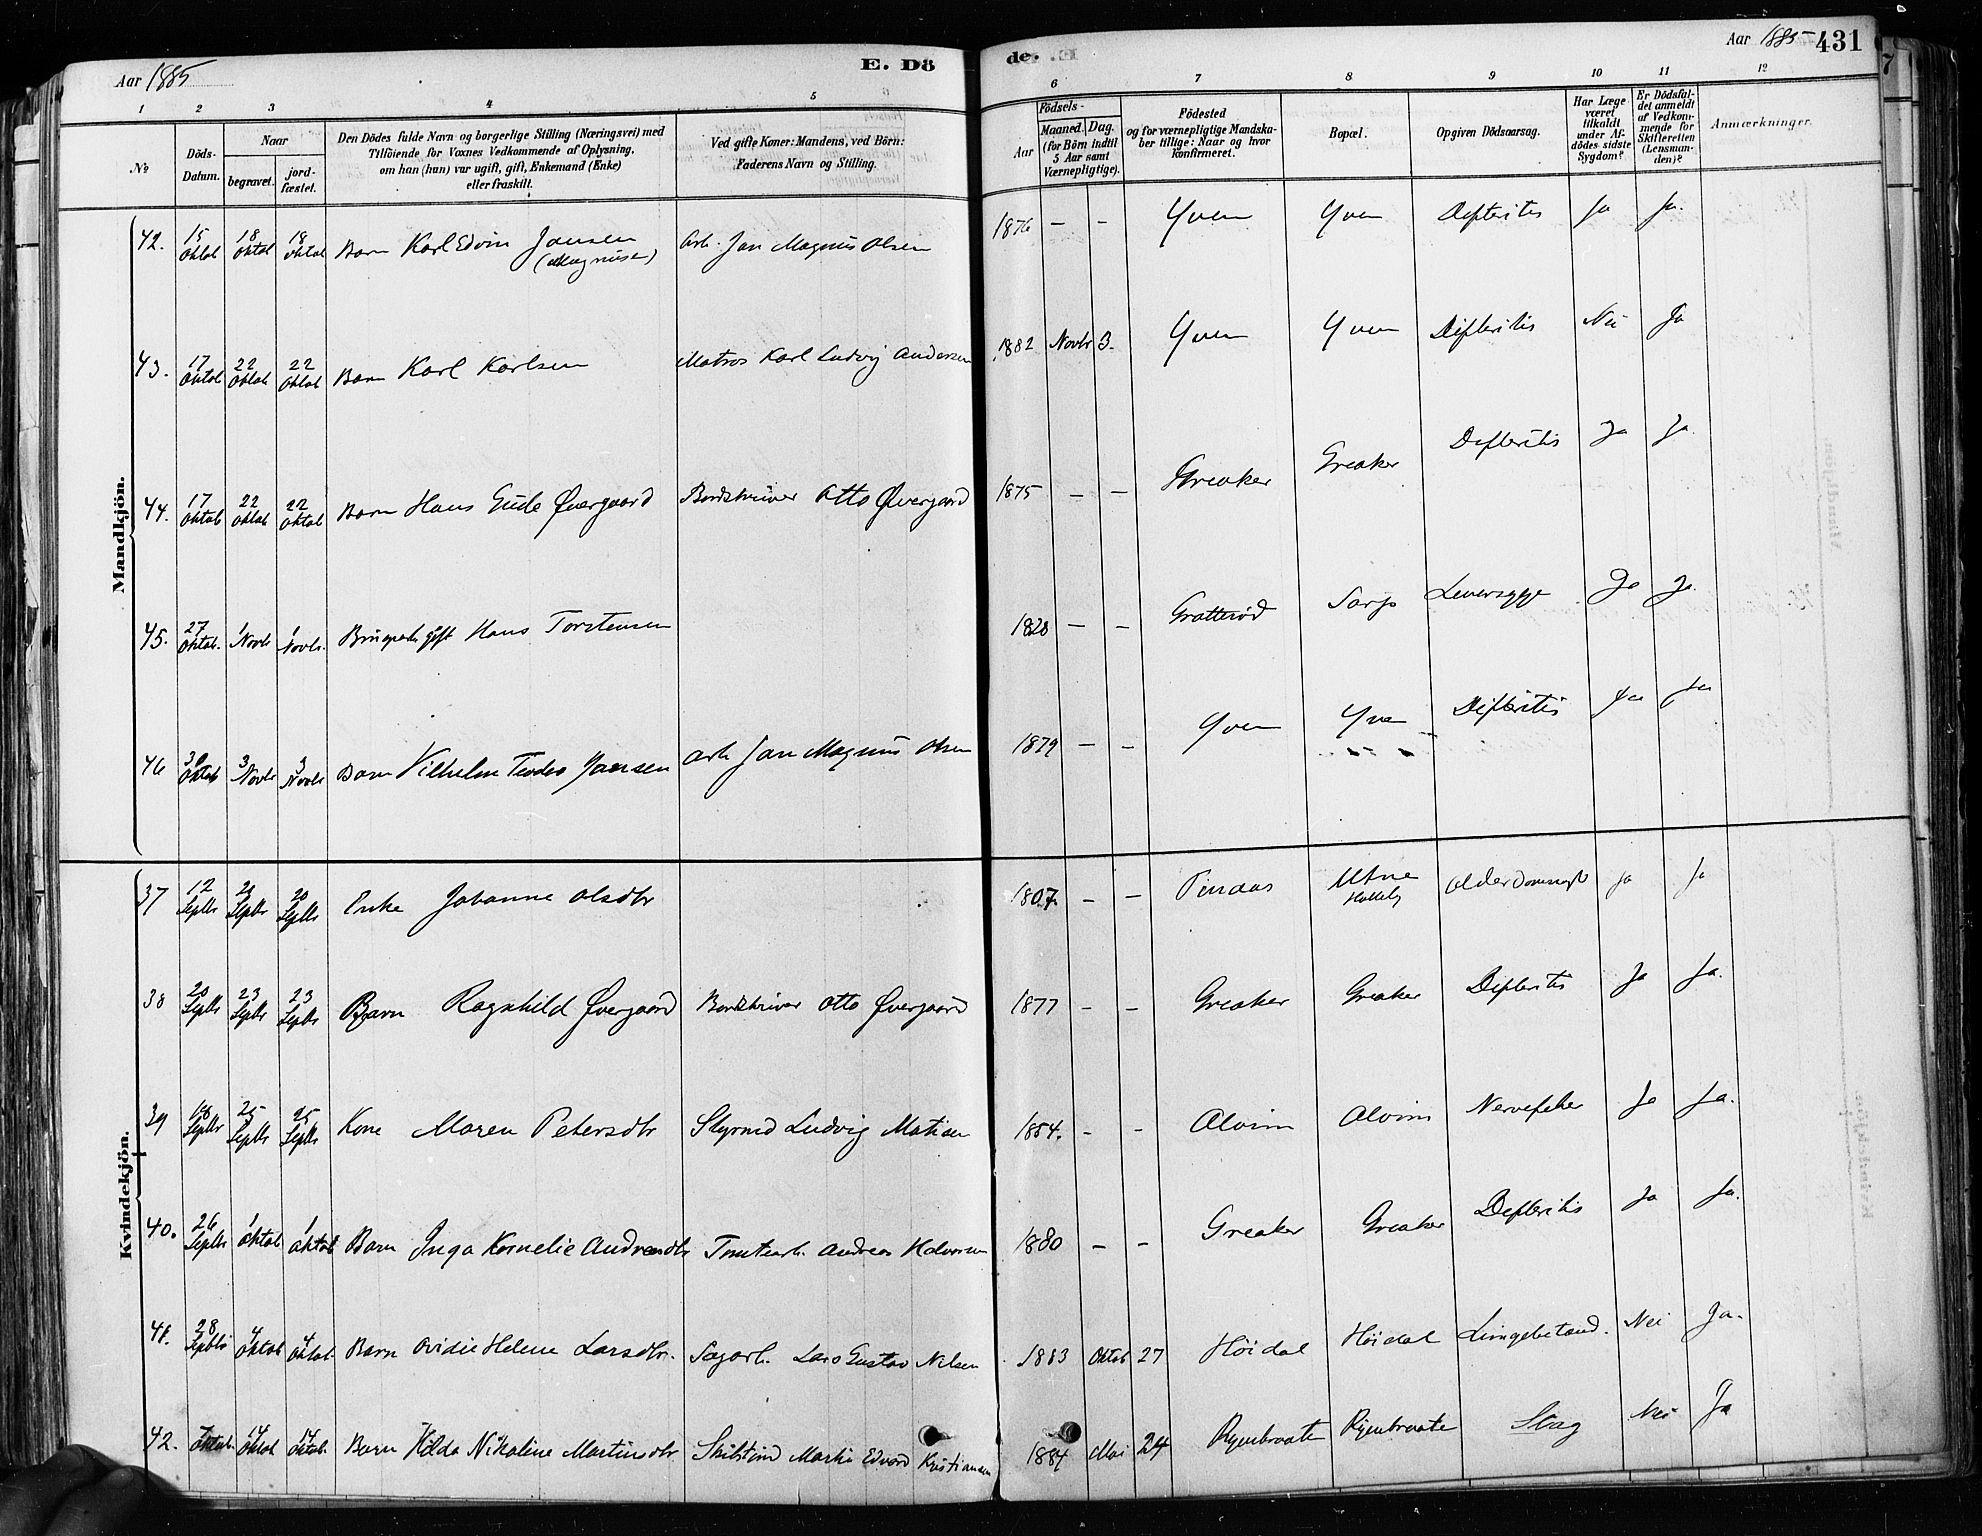 Aar 1885
E. Dö
de.
Aar 1885
431
1 2 3 4 5 6 7 8 9 10 11 12
No
Döds-
Datum.
Naar
begravet.
jord-
fæstet.
Den Dödes fulde Navn og borgerlige Stilling (Næringsvei) med
Tilföiende for Voxnes Vedkommende af Oplysning,
om han (hun) var ugift, gift, Enkemand (Enke)
eller fraskilt.
Ved gifte Koner: Mandens, ved Börn:
Faderens Navn og Stilling.
Födsels-
Aar
Maaned.
Dag.
(for Börn indtil
5 Aar samt
Værnepligtige).
Födested
og for værnepligtige Mandska-
ber tillige: Naar og hvor
konfirmeret.
Bopæl.
Opgiven Dödsaarsag.
Har Læge
været
tilkaldt
under Af-
dödes sidste
Sygdom?
Er Dödsfal-
det anmeldt
af Vedkom-
mende for
Skifteretten
(Lensman-
den)?
Anmærkninger.
Mandkjön.
42. 15 Oktob 18 Oktob 18 Oktob Barn Karl Edvin Jansen (Magnusen) Arb. Jan Magnus Olsen 1876 – – Yven Yven Defteritis Ja Ja.
43. 17 Oktob 22 Oktob 22 Oktob Barn Karl Karlsen Matros Karl Ludvig Andersen 1882 Novbr 3. Yven Yven Difteritis Nei Ja
44. 17 Oktob 22 Oktob 22 Oktob Barn Hans Gude Øvergaard Bordskriver Otto Øvergaard 1875 – – Greaker Greaker Defteritis Ja Ja
45. 27 Oktob. 1 Novbr 1 Novbr. gift Hans Torstensen 1828 – – Gratterød Leversyge Ja Ja.
46 30 Oktob 3 Novbr 3 Novbr Barn Vilhelm Teodor Jansen Arb Jan Magnus Olsen 1879 – – Yven Yven Difteritis Ja Ja
Kvindekjön.
37 12 Septbr 20 Septbr 20 Septbr Enke Johanne Olsdtr 1807. – – Pinaas Utne Alderdomssvagh Ja Ja
38 20 Septbr 23 Septbr 23 Septbr Barn Ragnhild Øvergaard Bordskriver Otto Øvergaard 1877 – – Greaker Greaker Defteritis Ja Ja.
39 18 Septbr 25 Septbr 25 Septbr Kone Maren Petersdtr Styrmd Ludvig Matisen 1854. – – Alvim Alvim Nervefeber Ja Ja.
40. 26 Septbr 1 Oktob 1 Oktob Barn Inga Kornelie Andreasdtr Tomtearb. Andreas Halvorsen 1880 – – Greaker Greaker Defteritis Ja Ja.
41. 28 Septbr 4 Oktob 4 Oktob. Barn Ovidie Helene Larsdtr. Sagarb. Lars Gustav Nilsen 1883 Oktob 27 Höidal Höidal Lungebetænd. Nei Ja.
42. 7 Oktob. 14 Oktob 14 Oktob. Barn Hilda Nikoline Martinsdtr. Martin Edvard Kristiansen 1884 Mai 24 Ryenbraate Ryenbraate Slag Nei Ja